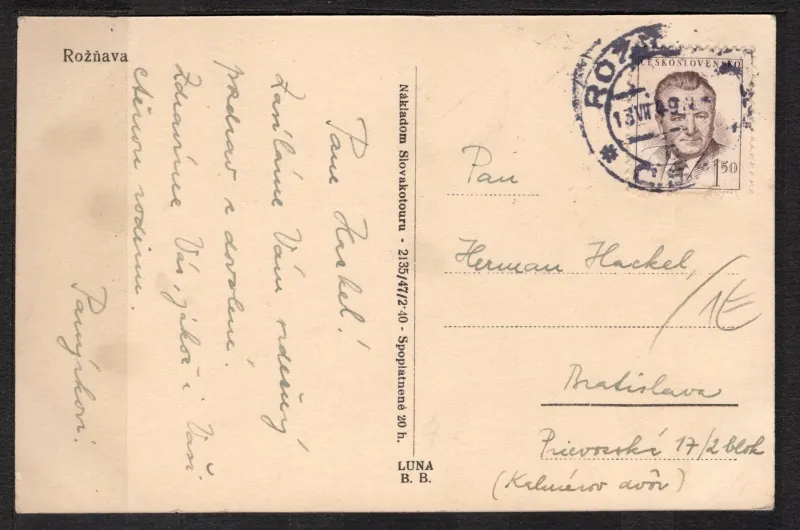 Rožňava
Pane Hackel!
Zasíláme Vám srdečný
pozdrav z dovolené.
Zdravíme Vás, jakož i Vaši
ctěnou rodinu.
Nákladom Slovakotouru - 2135/47/2·40 - Spoplatnené 20 h.
LUNA
B. B.
ČESKOSLOVENSKO
1 50
ROŽ
13 VII 49
Pán
Herman Hackel,
/1€
Bratislava
Prievozská 17/2 blok
(Kelmérov dvôr)